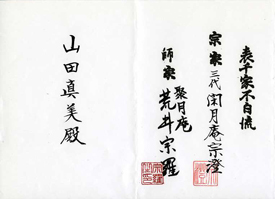 表千家不白流
宗家 三代 閑月庵宗澄
師家 聚月庵
荒井宗羅
山田真美殿